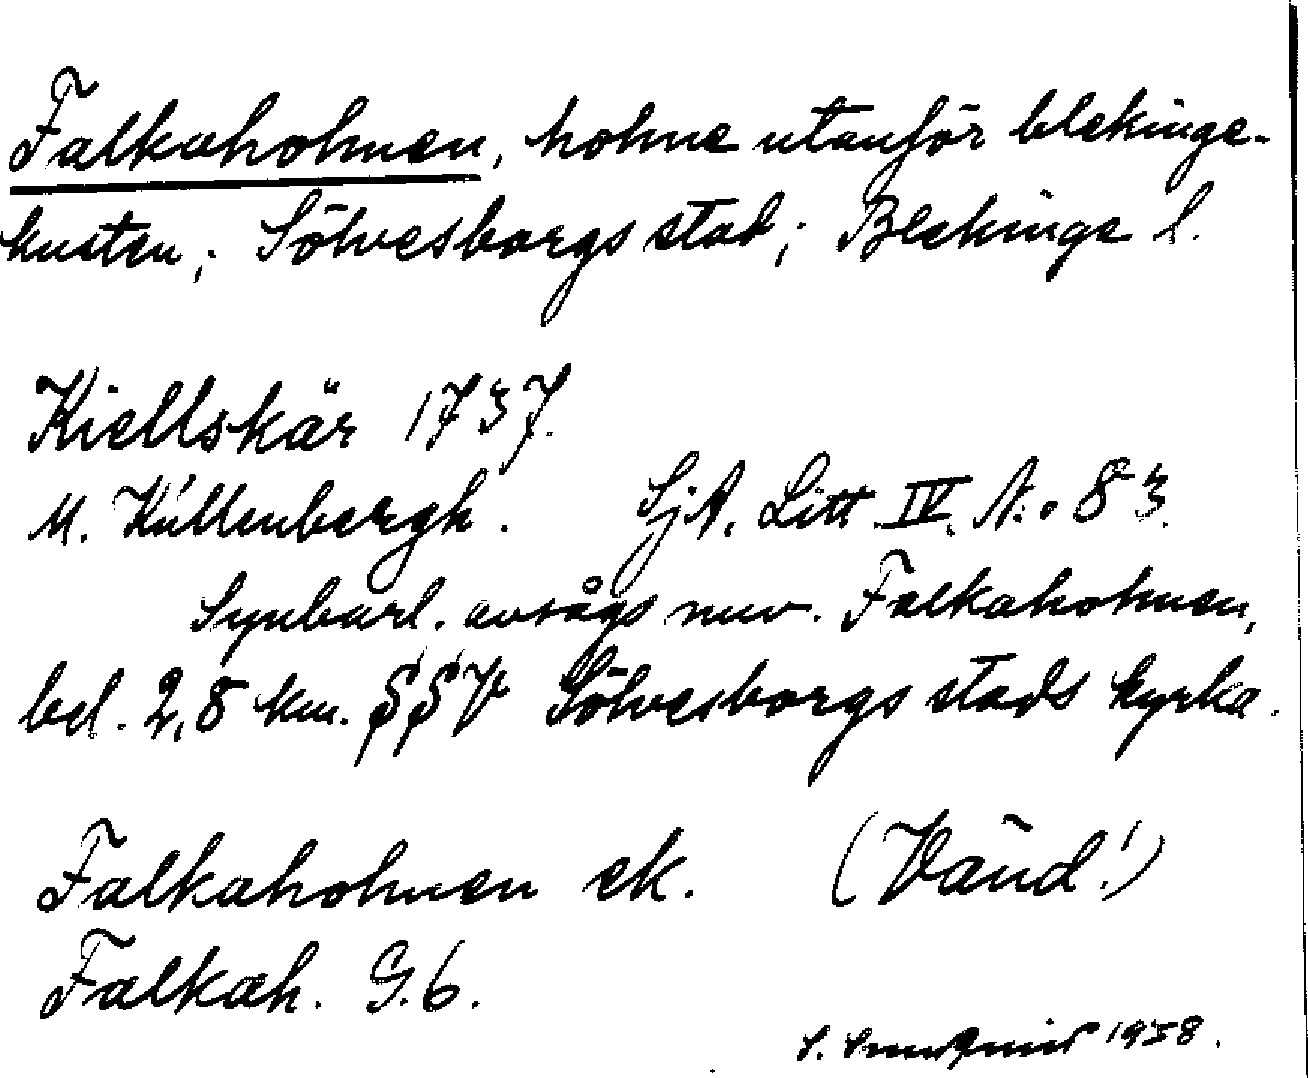 Falkaholmen, holme utanför blekinge-
kusten; Sölvesborgs stad; Blekinge l.
Kiellskär 1737.
M. Küllenbergh. SjA. Litt IV. No 83.
Synbarl. avsågs nuv. Falkaholmen,
bel. 2,8 km. SSV Sölvesborgs stads kyrka.
Falkaholmen ek. (Vänd!)
Falkah. G.6.
S. 1958.